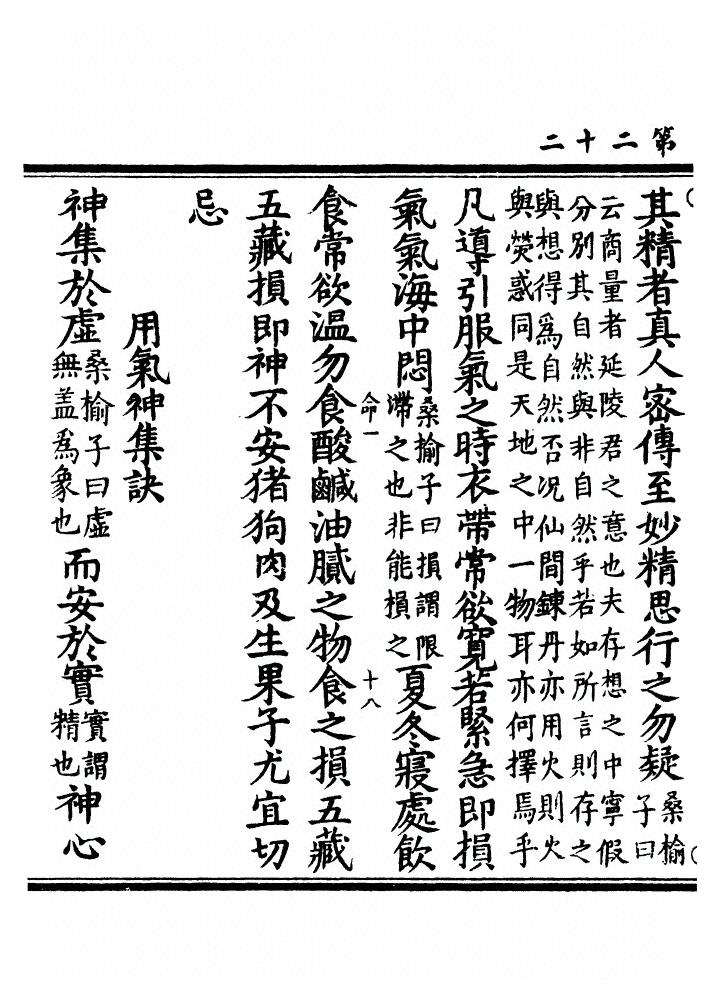 第二十二
其精者真人密傳至妙精思行之勿疑桑榆子曰
云商量者延陵君之意也夫存想之中寧假
分別其自然與非自然乎若如所言則存之
與想得為自然否况仙間鍊丹亦用火則火
與熒惑同是天地之中一物耳亦何擇焉乎
凡導引服氣之時衣帶常欲寬若緊急即損
氣氣海中悶桑榆子曰損謂限滯之也非能損之夏冬寢處飲
食常欲溫勿食酸鹹油膩之物食之損五藏
命一
十八
五藏損即神不安猪狗肉及生果子尤宜切
忌
用氣神集訣
神集於虛桑榆子曰虛無盖為象也而安於實實謂精也神心